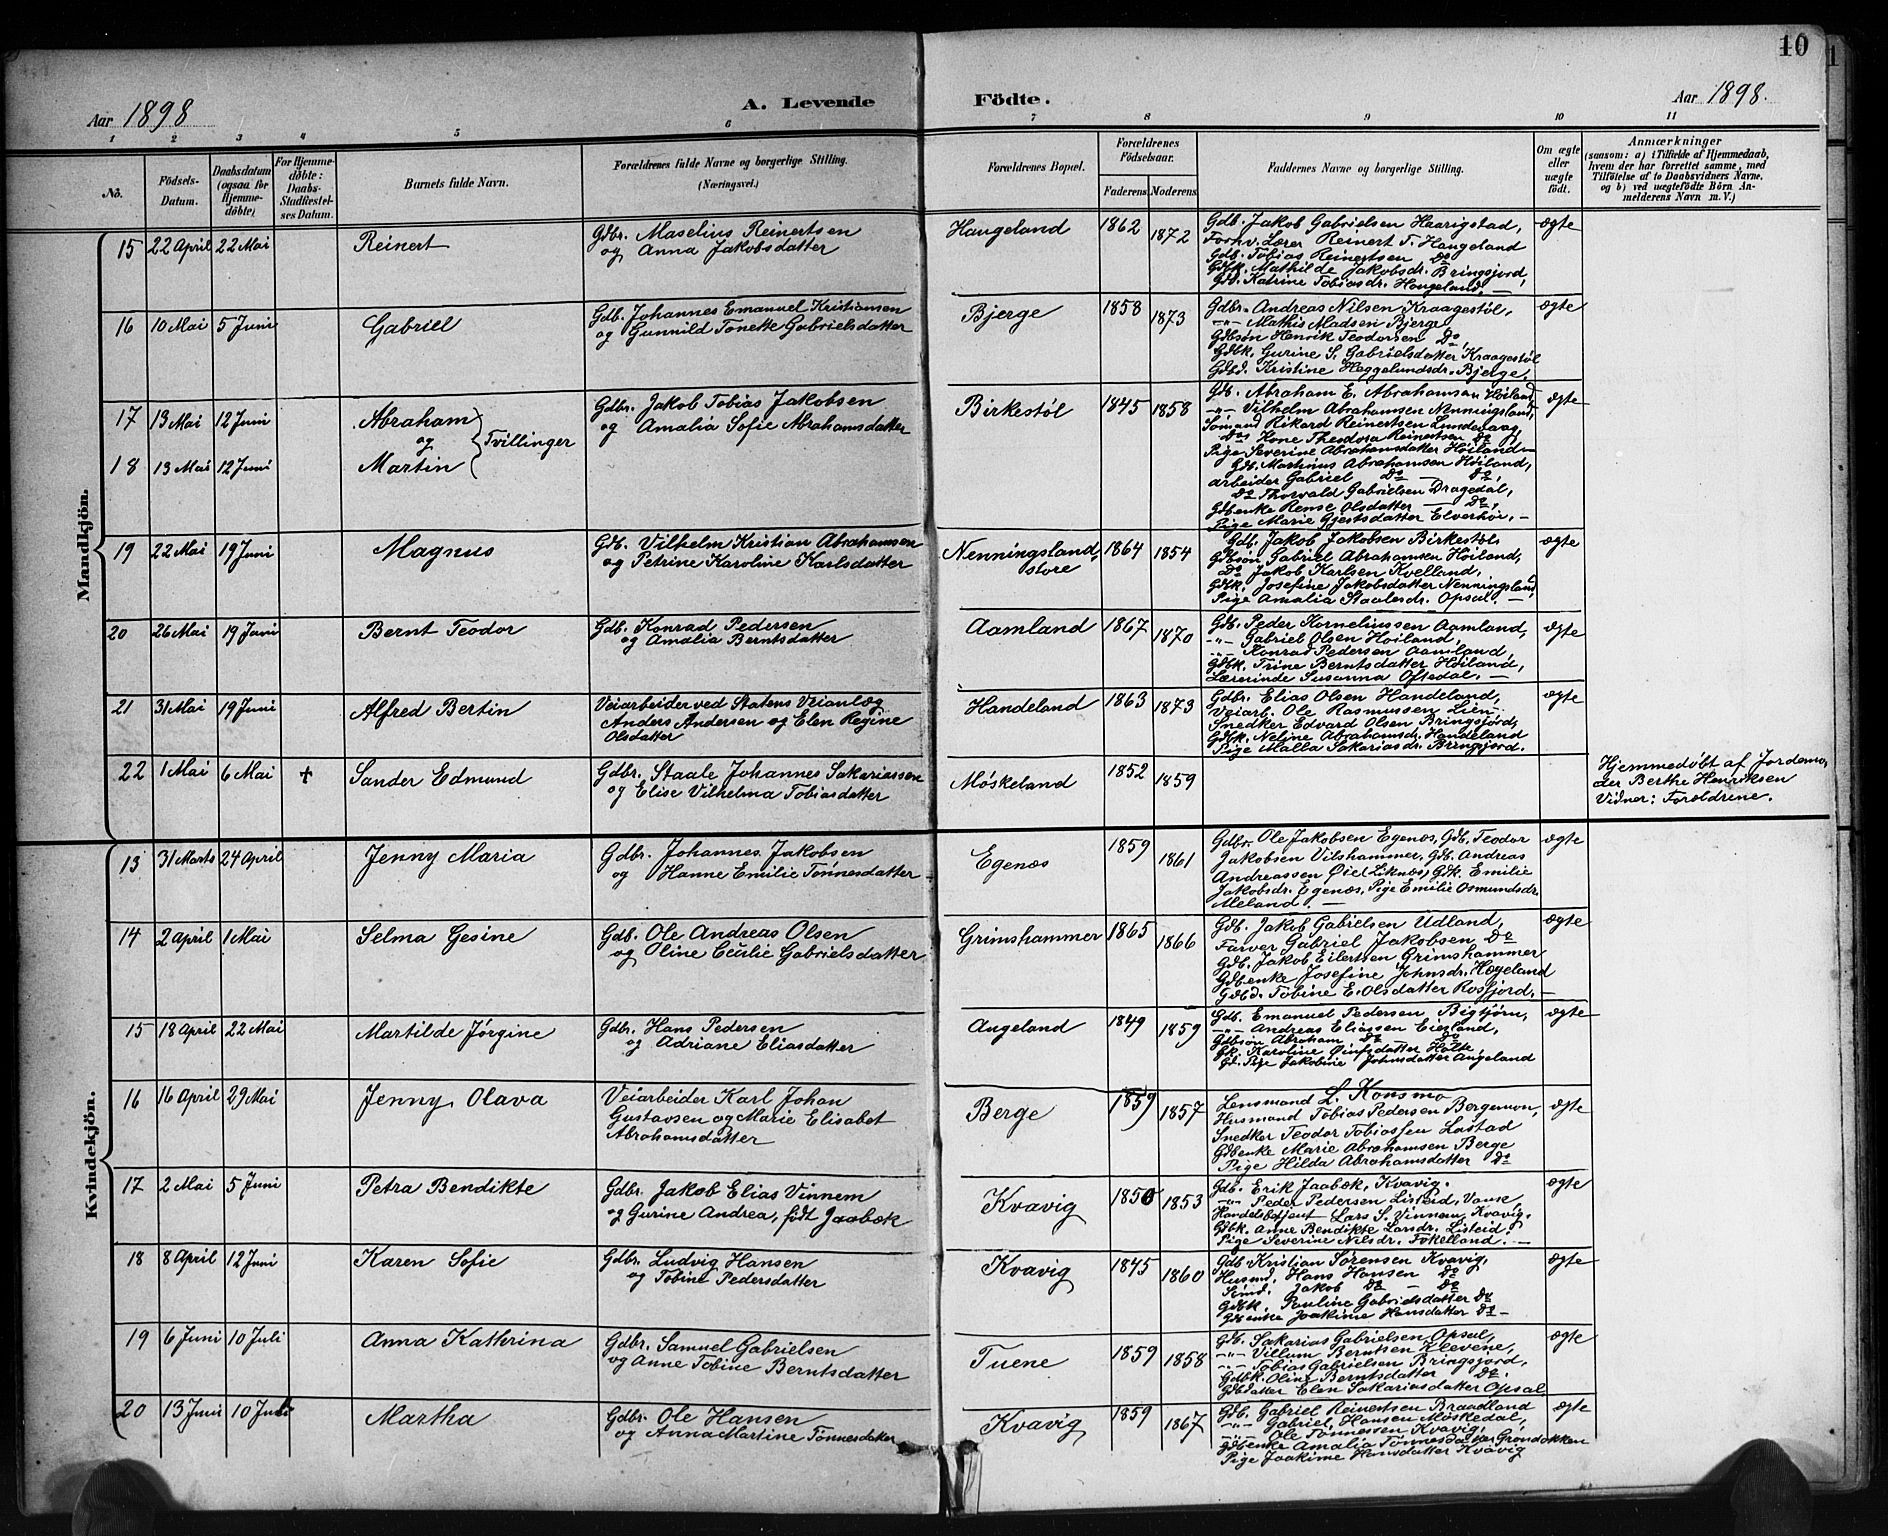 10
Aar 1898
A. Levende Födte.
Aar 1898.
1 2 3 4 5 6 7 8 9 10 11
No.
Födsels-Datum.
Daabsdatum (ogsaa for Hjemmedöbte)
For Hjemmedöbte: Daabs-Stadfæstelses Datum.
Barnets fulde Navn.
Forældrenes fulde Navne og borgerlige Stilling. (Næringsvei.)
Forældrenes Bopæl.
Forældrenes Födselsaar.
Faderens. Moderens.
Faddernes Navne og borgerlige Stilling.
Om ægte eller uægte födt.
Anmærkninger
(saasom: a) i Tilfælde af Hjemmedaab, hvem der har forrettet samme, med Tilföielse af to Daabsvidners Navne, og b) ved uægtefödte Börn Anmelderens Navn m. V.)
Mandkjön.
15 22 April 22 Mai Reinert
Gdbr. Maselius Reinertsen
og Anna Jakobsdatter
Haugeland 1862 1872
Gdb. Jakob Gabrielsen Haarigstad,
Forhv. Lærer Reinert T. Haugeland
Gdb. Tobias Reinertsen Do
Gdbk. Mathilde Jakobsdr. Bringsjord,
Gdd. Katrine Tobiasdr. Haugeland. —
ægte
16 10 Mai 5 Juni Gabriel
Gdb. Johannes Emanuel Kristiansen
og Gunnild Tonette Gabrielsdatter
Bjerge 1858 1873
Gdbr. Andreas Nilsen Kraagestøl,
—"— Mathis Madsen Bjerge
Gdbsøn Henrik Teodorsen Do,
Gdbk. Gurine S. Gabrielsdatter Kraagestøl
Gdbd. Kristine Heggelundsdr. Bjerge.
ægte
17 13 Mai 12 Juni Abraham
og Tvillinger
18 13 Mai 12 Juni Martin
Gdbr. Jakob Tobias Jakobsen
og Amalia Sofie Abrahamsdatter
Birkestøl 1845 1858
Gdb. Abraham E. Abrahamsen Høiland
—"— Vilhelm Abrahamsen Nenningsland,
Sømand Rikard Reinertsen Lundevaag,
Dos Kone Theodora Reinertsen Do,
Pige Severine Abrahamsdatter Høiland—
Gdb. Martinus Abrahamsen Høiland,
arbeider Gabriel Do — Do,
Do Thorvald Gabrielsen Dragedal,
Gdbenke Rense Olsdatter — Do,
Pige Marie Gjestsdatter Elverhøi. —
ægte
19 22 Mai 19 Juni Magnus
Gdb. Vilhelm Kristian Abrahamsen
og Petrine Karoline Karlsdatter
Nenningsland, store 1864 1854
Gdb. Jakob Jakobsen Birkestøl,
Gdbsøn Gabriel Abrahamsen Høiland,
Do Jakob Karlsen Kvelland,
Gdbk. Josefine Jakobsdatter Nenningsland,
Pige Amalia Staalesdr. Opsal. —
ægte
20 26 Mai 19 Juni Bernt Teodor
Gdb. Konrad Pedersen
og Amalia Berntsdatter
Aamland 1867 1870
Gdb. Peder Korneliussen Aamland,
—"— Gabriel Olsen Høiland,
—"— Konrad Pedersen Aamland,
Gdbk. Trine Berntsdatter Høiland,
Lærerinde Susanna Oftedal. —
ægte
21 31 Mai 19 Juni Alfred Bertin
Veiarbeider ved Statens Veianlæg
Anders Andersen og Elen Regine
Olsdatter
Handeland 1863 1873
Gdbr. Elias Olsen Handeland,
Veiarb. Ole Rasmussen Lien
Snedker Edvard Olsen Bringsjord,
Gdbk. Neline Abrahamsdr. Handeland
Pige Malla Sakariasdr. Bringsjord.
ægte
22 1 Mai 6 Mai + Sander Edmund
Gdbr. Staale Johannes Sakariassen
og Elise Vilhelma Tobiasdatter
Møskeland 1852 1859
Hjemmedøbt af Jordemo,
der Berthe Henriksen
Vidner: Forældrene.
Kvindekjön.
13 31 Marts 24 April Jenny Maria
Gdbr. Johannes Jakobsen
og Hanne Emilie Tønnesdatter
Egenæs 1859 1861
Gdbr. Ole Jakobsen Egenæs, Gdb. Teodor
Jakobsen Vilshammer, Gdb. Andreas
Andreassen Øie (Liknæs), Gdk. Emilie
Jakobsdr. Egenæs, Pige Emilie Osmundsdr.
Meland. —
ægte
14 2 April 1 Mai Selma Gesine
Gdb. Ole Andreas Olsen
og Oline Cecilie Gabrielsdatter
Grimshammer 1865 1866
Gdb. Jakob Gabrielsen Udland,
Farver Gabriel Jakobsen Do
Gdb. Jakob Eilertsen Grimshammer
Gdbenke Josefine Johnsdr. Hægeland
Gdbd. Tobine E. Olsdatter Rosfjord. —
ægte
15 18 April 22 Mai Martilde Jørgine
Gdbr. Hans Pedersen
og Adriane Eliasdatter
Angeland 1849 1859
Gdb. Emanuel Pedersen Bigtjørn,
—"— Andreas Eliassen Eiesland,
Gdbsøn Abraham Do Do
Gk. Karoline Omfsdatter Holte,
Gd. Pige Jakobine Johnsdatter Angeland
ægte
16 16 April 29 Mai Jenny Olava
Veiarbeider Karl Johan
Gustavsen og Marie Elisabet
Abrahamsdatter
Berge 1859 1857
Lensmand L. Konsmo
Husmand Tobias Pedersen Bergemon,
Snedker Teodor Tobiassen Lastad
Gdbenke Marie Abrahamsen Berge
Pige Hilda Abrahamsdatter Do
ægte
17 2 Mai 5 Juni Petra Bendikte
Gdbr. Jakob Elias Vinnem
og Gurine Andrea, født Jaabæk
Kvavig 1850 1853
Gdb. Erik Jaabæk, Kvavig.
—"— Peder Pedersen Listeid, Vanse
Handelsbetjent Lars S. Vinnem, Kvavig,
Gdbk. Anne Bendikte Larsdr. Listeid,
Pige Severine Nilsdr. Fokelland. —
ægte
18 8 April 12 Juni Karen Sofie
Gdbr. Ludvig Hansen
og Tobine Pedersdatter
Kvavig 1845 1860
Gdb Kristian Sørensen Kvavig,
Husmd. Hans Hansen Do
Smd. Jakob Do — Do
Gdbk. Pauline Gabrielsdatter Do
Gdbenke Joakime Hansdatter Do —
ægte
19 6 Juni 10 Juli Anna Kathrina
Gdbr. Samuel Gabrielsen
og Anne Tobine Berntsdatter
Tuene 1859 1858
Gdb. Sakarias Gabrielsen Opsal,
—"— Villum Berntsen Klevene,
—"— Tobias Gabrielsen Bringsjord,
Gdbk. Oline Berntsdatter Do.
Gdbdatter Elen Sakariasdatter Opsal
ægte
20 13 Juni 10 Juli Martha
Gdbr. Ole Hansen
og Anna Martine Tønnesdatter
Kvavig 1859 1867
Gdb. Gabriel Reinertsen Braadland
—"— Gabriel Hansen Møskedal,
—"— Ole Tønnessen Kvavig,
Gdbenke Amalia Tønnesdatter
Pige Joakime Hansdatter Kvavig
ægte